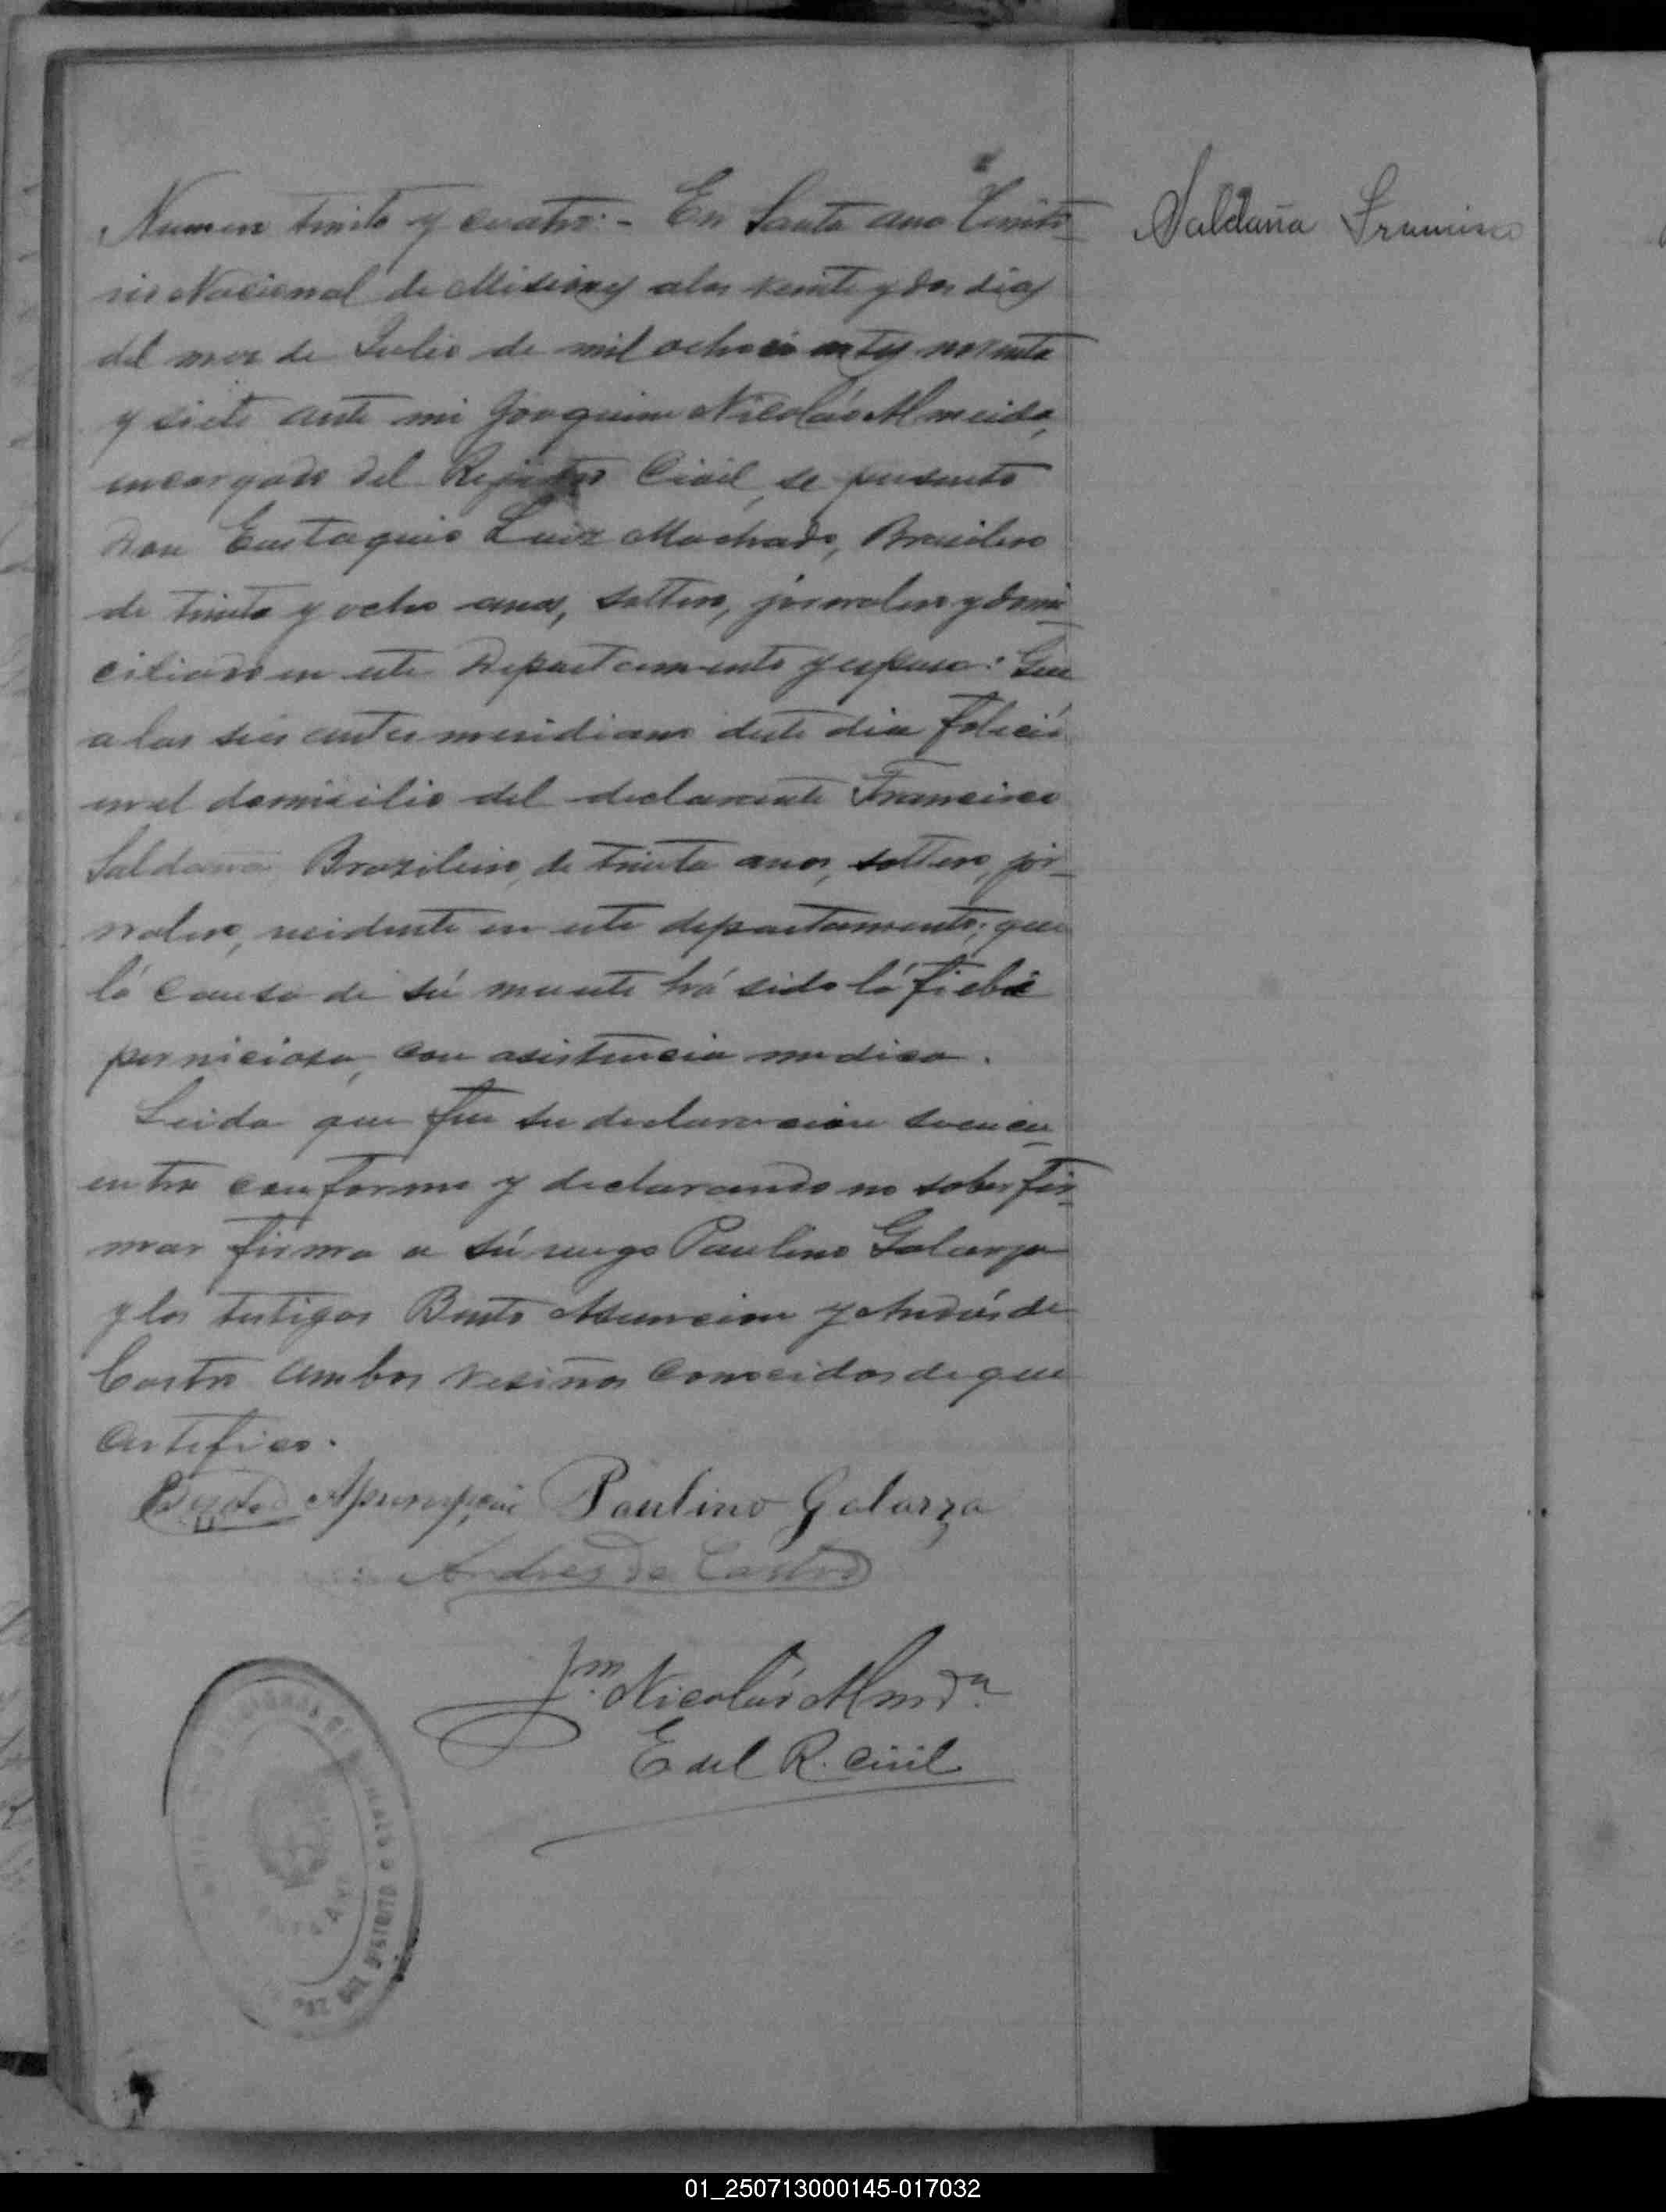 Numero trinta y cuatro:- En Santa Ana Territo=
rio Nacional de Misiones a los veinte y dos dias
del mes de Julio de mil ochocientos noventa
y siete ante mi Joaquim Nicolás Almeida,
encargado del Registro Civil, se presento
Don Eustaquio Luiz Machado, Brasilero
de trinta y ocho anos, soltero, jornalero y domi=
ciliado en este Departamento y espuso: Que
a las seis antes meridiano deste dia falició
en el domicilio del declarante Francisco
Saldana Brazileiro, de trinta anos, soltero, jor=
nalero, residente en este departamento; que
lá causa de sú muerte há sido lá fiebre
perniciosa, con asistencia medica.
Leida que fue su declaracion
conforme y declarando no saber fir=
mar firma a sú ruego Paulino Galarza
y los testigos Bento Asuncion y Andrés de
Castro ambos vesinos conocidos de que
certifico.
Bento Paulino Galarza
Andres de Castro
Jm. Nicolás Almda.
E del R. Civil
Saldaña Francisco
JUEZ DEL DISTRITO
01_250713000145-017032